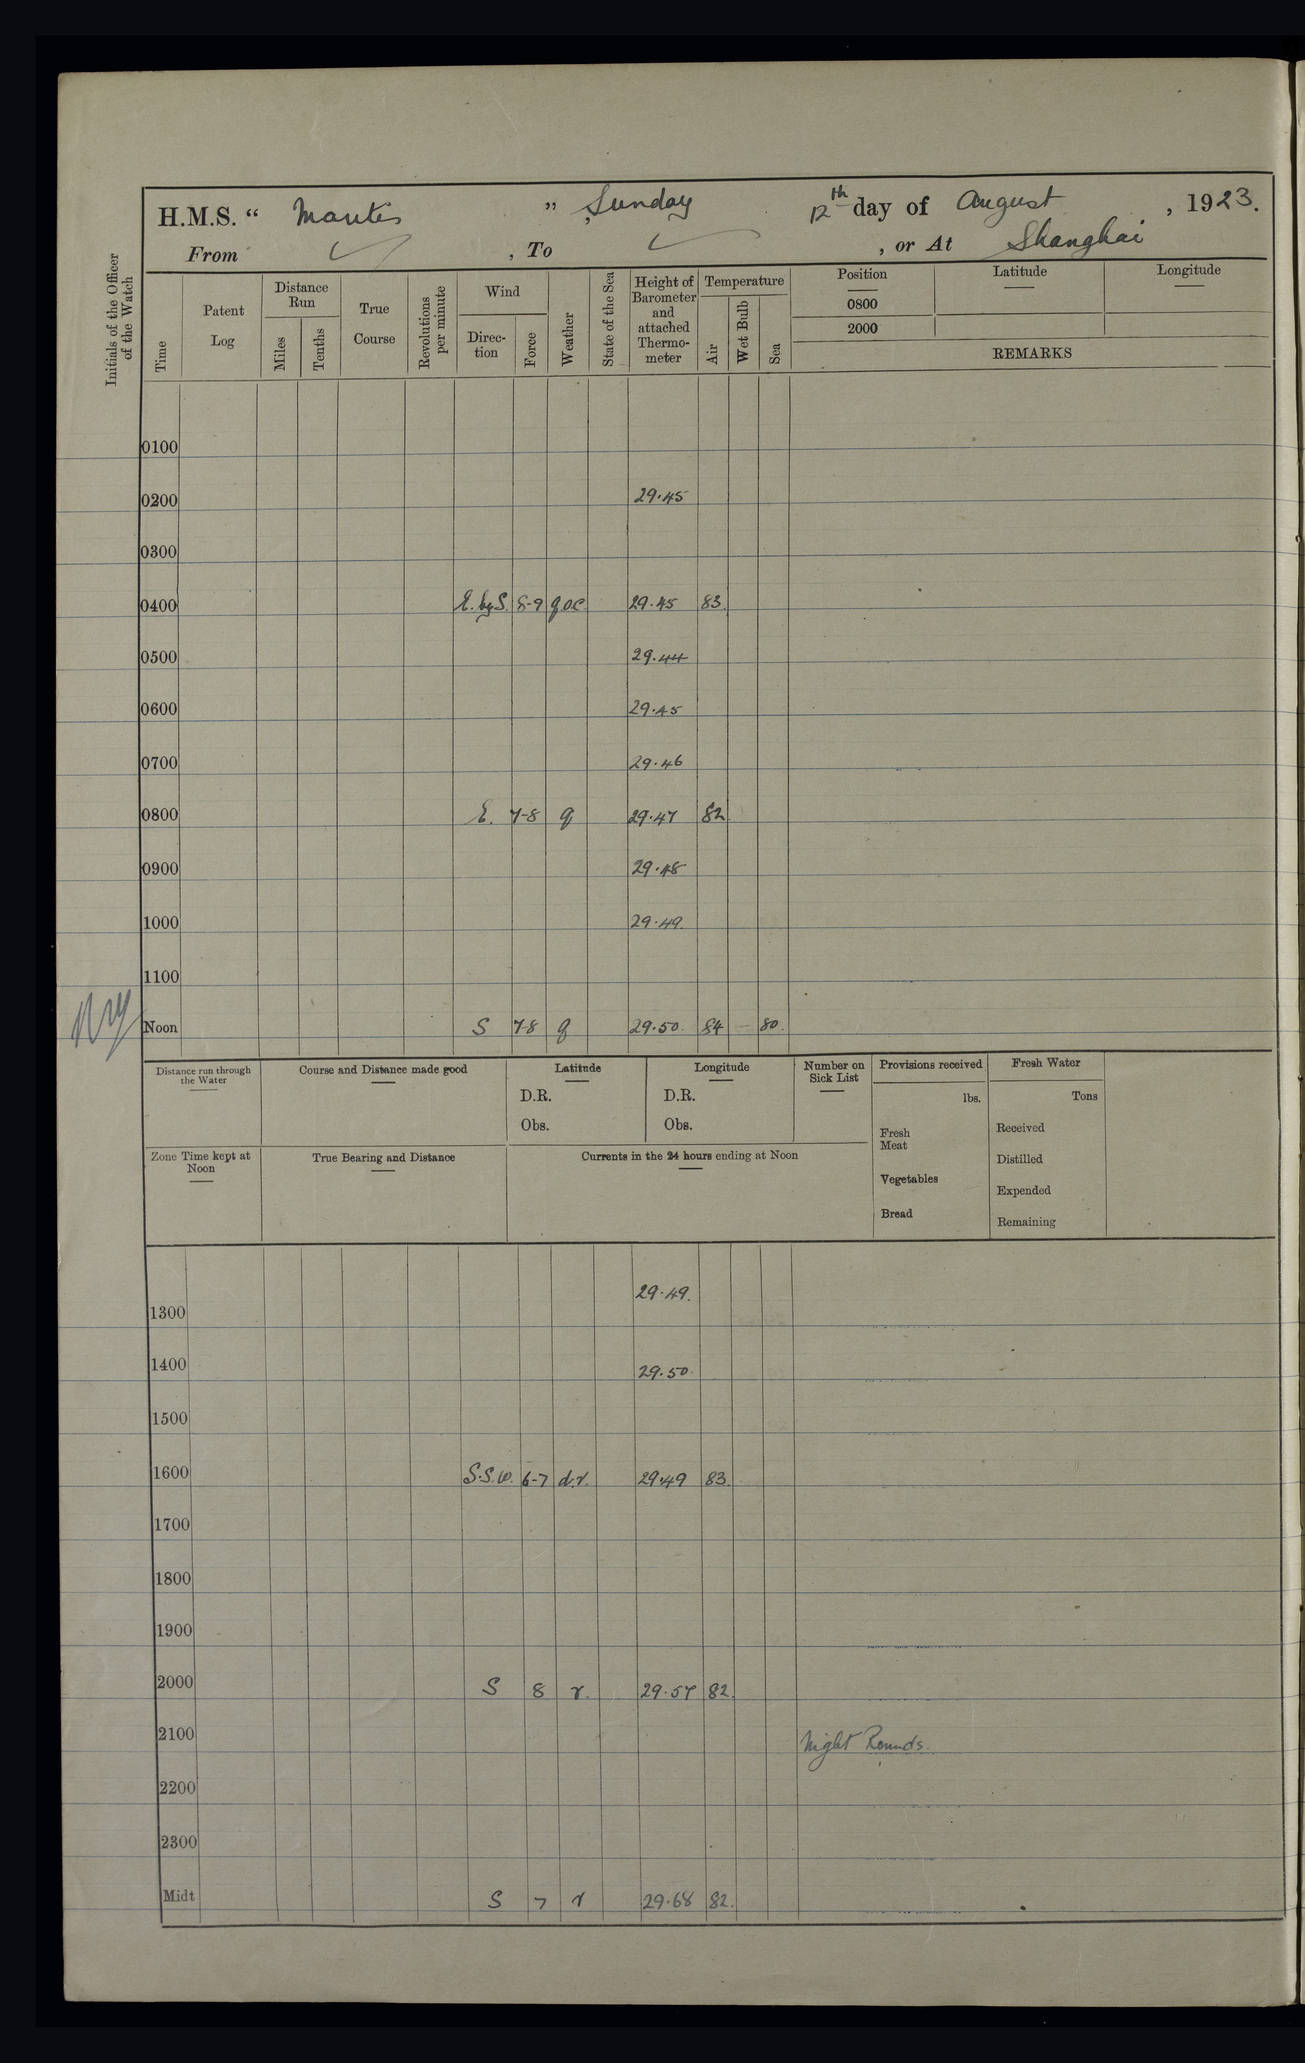 H.M.S. “ Mantis ” , Sunday 12th day of August , 1923.
From , To , or At Shanghai
Initials of the Officer of the Watch
Time
Patent Log
Distance Run
Miles
Tenths
True Course
Revolutions per minute
Wind
Direc-tion
Force
Weather
State of the Sea
Height of Barometer and attached Thermo-meter
Temperature
Air
Wet Bulb
Sea
Position Latitude Longitude
0800
2000
REMARKS
0100
0200 29.45
0300
0400 E. by S. 8-9 q.o.c. 29.45 83
0500 29.44
0600 29.45
0700 29.46
0800 E. 7-8 q 29.47 82
0900 29.48
1000 29.49
1100
Noon S 7-8 q 29.50 84 — 80.
Distance run through the Water
Course and Distance made good
Latitude
D.R.
Obs.
Longitude
D.R.
Obs.
Number on Sick List
Provisions received
lbs.
Fresh Meat
Vegetables
Bread
Fresh Water
Tons
Received
Distilled
Expended
Remaining
Zone Time kept at Noon
True Bearing and Distance
Currents in the 24 hours ending at Noon
1300 29.49.
1400 29.50.
1500
1600 S.S.W. 6-7 d.r. 29.49 83.
1700
1800
1900
2000 S 8 r. 29.57 82.
2100 Night Rounds.
2200
2300
Midt S 7 r 29.68 82.